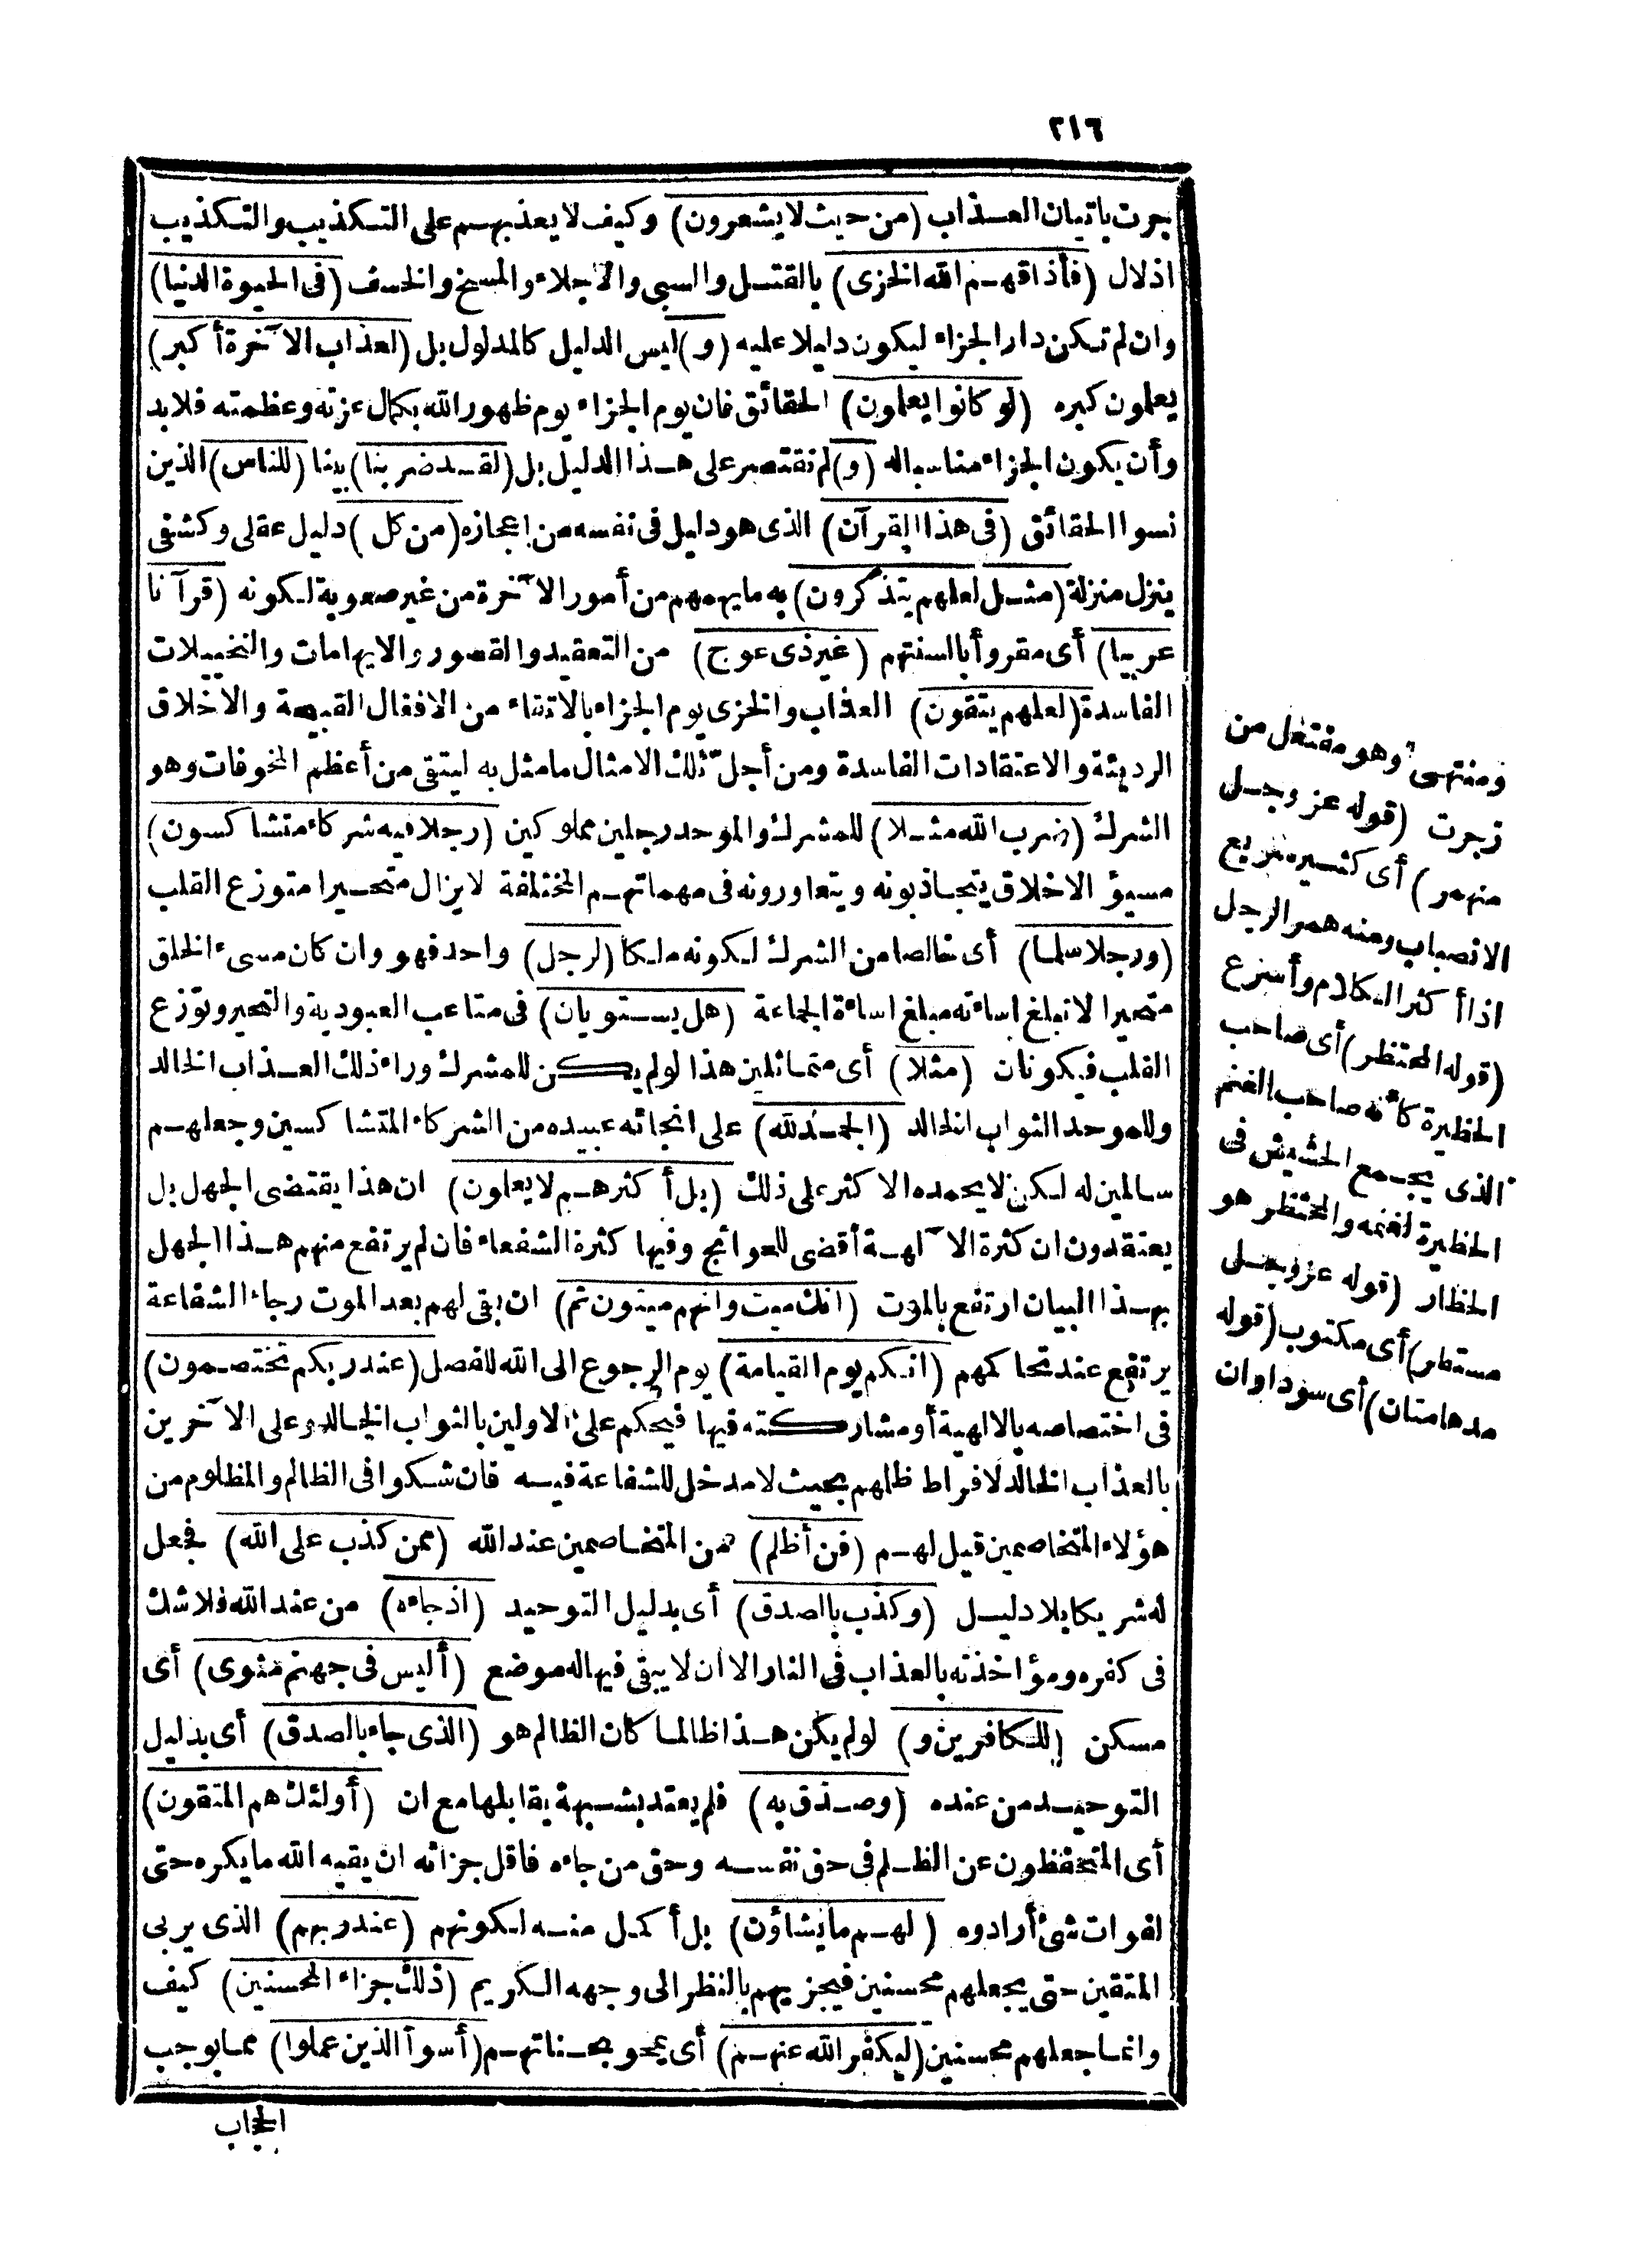 ٢١٦
جرت باتيان العذاب (من حيث لا يشعرون) وكيف لا يعذبهم على التكذيب والتكذيب
اذلال (فأذاقهم الله الخزى) بالقتل والسبى والاجلاء والمسخ والخسف (فى الحيوة الدنيا)
وان لم تكن دار الجزاء ليكون دليلا عليه (و) ليس الدليل كالمدلول بل (لعذاب الآخرة أكبر)
يعلمون كبره (لو كانوا يعلمون) الحقائق فان يوم الجزاء يوم ظهور الله بكمال عزته وعظمته فلا بد
وأن يكون الجزاء مناسباله (و) لم نقتصر على هذا الدليل بل (لقد ضربنا) بينا (للناس) الذين
نسوا الحقائق (فى هذا القرآن) الذى هو دليل فى نفسه من اعجازه (من كل) دليل عقلى وكشفى
ينزل منزلة (مثل لعلهم يتذكرون) به ما يهمهم من أمور الآخرة من غير صعوبة لكونه (قرآنا
عربيا) أى مقروأ بالسنتهم (غير ذى عوج) من التعقيد والقصور والايهامات والتخييلات
الفاسدة (لعلهم يتقون) العذاب والخزى يوم الجزاء بالاتقاء من الافعال القبيحة والاخلاق
الرديئة والاعتقادات الفاسدة ومن أجل تلك الامثال ما مثل به ليتقى من أعظم المخوفات وهو
الشرك (ضرب الله مثلا) للمشرك والموحد رجلين مملوكين (رجلا فيه شركاء متشاكسون)
مسيؤ الاخلاق يتجاذبونه ويتعاورونه فى مهماتهم المختلفة لا يزال متحيرا متوزع القلب
(ورجلا سلما) أى خالصا من الشرك لكونه ملكا (لرجل) واحد فهو وان كان مسىء الخلق
متحيرا لا تبلغ اساءته مبلغ اساءة الجماعة (هل يستويان) فى متاعب العبودية والتحير وتوزع
القلب فيكونان (مثلا) أى متماثلين هذا لو لم يكن للمشرك وراء ذلك العذاب الخالد
وللموحد الثواب الخالد (الحمد لله) على انجائه عبيده من الشركاء المتشاكسين وجعلهم
سالمين له لكن لا يحمده الاكثر على ذلك (بل أكثرهم لا يعلمون) ان هذا يقتضى الجهل بل
يعتقدون ان كثرة الآلهة أقضى للحوائج وفيها كثرة الشفعاء فان لم يرتفع منهم هذا الجهل
بهذا البيان ارتفع بالموت (انك ميت وانهم ميتون ثم) ان بقى لهم بعد الموت رجاء الشفاعة
يرتفع عند تحاكمهم (انكم يوم القيامة) يوم الرجوع الى الله للفصل (عند ربكم تختصمون)
فى اختصاصه بالالهية أو مشاركته فيها فيحكم على الاولين بالثواب الخالد وعلى الآخرين
بالعذاب الخالد لافراط ظلمهم بحيث لا مدخل للشفاعة فيه فان شكوا فى الظالم والمظلوم من
هؤلاء المتخاصمين قيل لهم (فمن أظلم) من المتخاصمين عند الله (ممن كذب على الله) فجعل
له شريكا بلا دليل (وكذب بالصدق) أى بدليل التوحيد (اذ جاءه) من عند الله فلا شك
فى كفره ومؤاخذته بالعذاب فى النار الا أن لا يبقى فيها له موضع (أليس فى جهنم مثوى) أى
مسكن (للكافرين و) لو لم يكن هذا ظالما كان الظالم هو (الذى جاء بالصدق) أى بدليل
التوحيد من عنده (وصدق به) فلم يعتد بشبهة يقابلها مع ان (أولئك هم المتقون)
أى المتحفظون عن الظلم فى حق نفسه وحق من جاءه فاقل جزائه ان يقيه الله ما يكره حتى
لفوات شئ أرادوه (لهم ما يشاؤن) بل أكمل منه لكونهم (عند ربهم) الذى يربى
المتقين حتى يجعلهم محسنين فيجزيهم بالنظر الى وجهه الكريم (ذلك جزاء المحسنين) كيف
وانما جعلهم محسنين (ليكفر الله عنهم) أى يمحو بحسناتهم (أسوأ الذين عملوا) مما يوجب
الحجاب
ومنتهى وهو مفتعل من
زجرت (قوله عز وجل
منهمر) أى كثير سريع
الانصباب ومنه همر الرجل
اذا أكثر الكلام وأسرع
(قوله المحتظر) أى صاحب
الحظيرة كأنه صاحب الغنم
الذى يجمع الحشيش فى
الحظيرة لغنمه والمحتظر هو
الحظار (قوله عز وجل
مستطر) أى مكتوب (قوله
مدهامتان) أى سوداوان